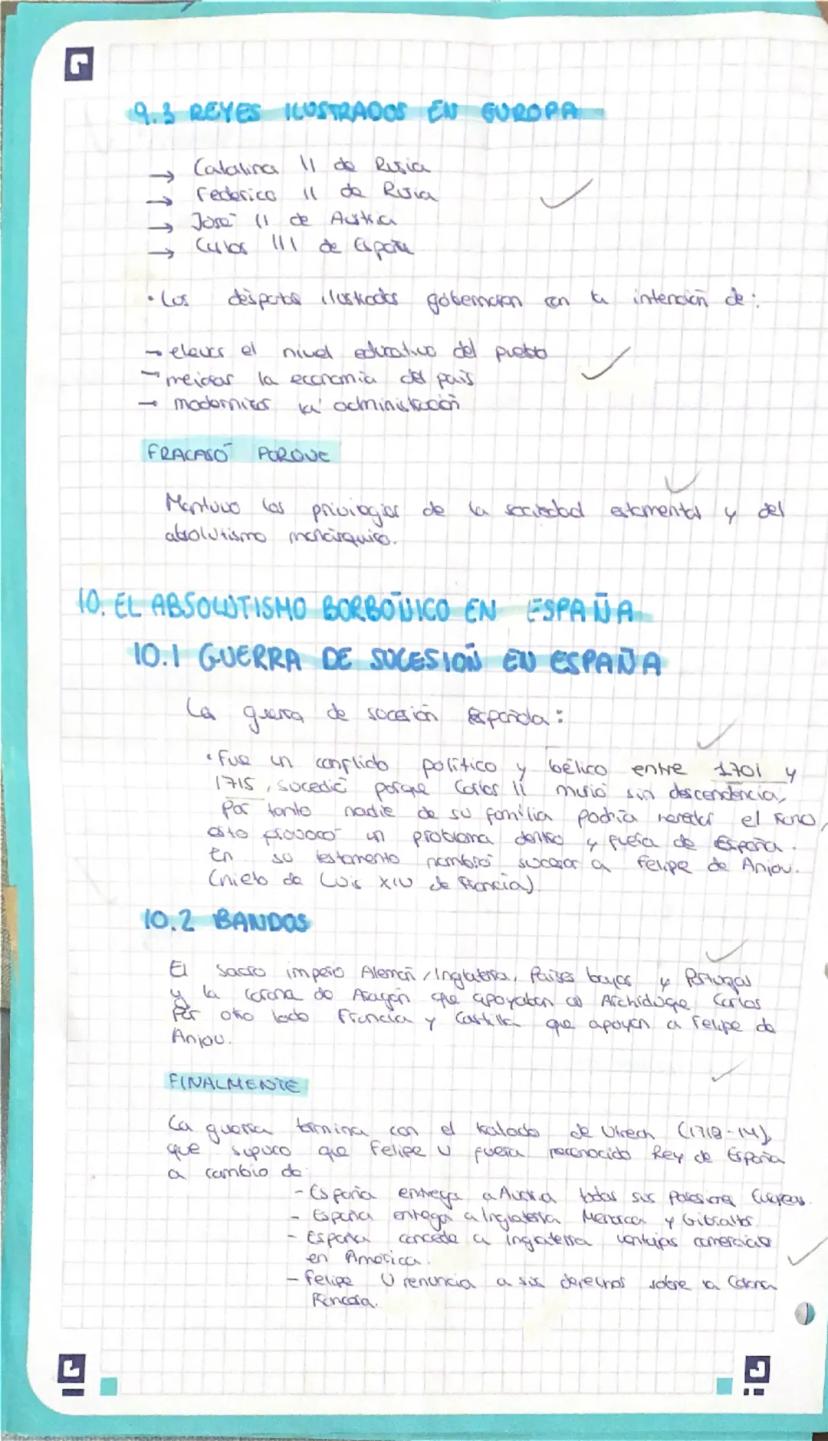 9.3 REYES ILUSTRADOS EN EUROPA
→ Catalina II de Rusia
→ Federico II de Rusia
→ José II de Austria
→ Carlos III de España
• Los déspotas ilustrados gobernaron con la intención de:
→ elevar el nivel educativo del pueblo
→ mejorar la economía del país
→ modernizar la administración
FRACASÓ PORQUE
Mantuvo los privilegios de la sociedad estamental y del
absolutismo monárquico.
10. EL ABSOLUTISMO BORBÓNICO EN ESPAÑA
10.1 GUERRA DE SUCESIÓN EN ESPAÑA
La guerra de sucesión Española:
• Fue un conflicto político y bélico entre 1701 y
1715, sucedió porque Carlos II murió sin descendencia,
Por tanto nadie de su familia podría heredar el reino,
esto provocó un problema dentro y fuera de España.
En su testamento nombró sucesor a Felipe de Anjou.
(nieto de Luis XIV de Francia)
10.2 BANDOS
El Sacro imperio Alemán, Inglaterra, Países bajos y Portugal
y la corona de Aragón que apoyaban al Archiduque Carlos
Por otro lado Francia y Castilla que apoyan a Felipe de
Anjou.
FINALMENTE
La guerra termina con el tratado de Utrech (1713-14),
que supuso que Felipe V fuera reconocido Rey de España
a cambio de
- España entrega a Austria todas sus posesiones Europeas.
- España entrega a Inglaterra Menorca y Gibraltar.
- España concede a Inglaterra ventajas comerciales
en America.
- Felipe V renuncia a sus derechos sobre la Corona
Francesa.